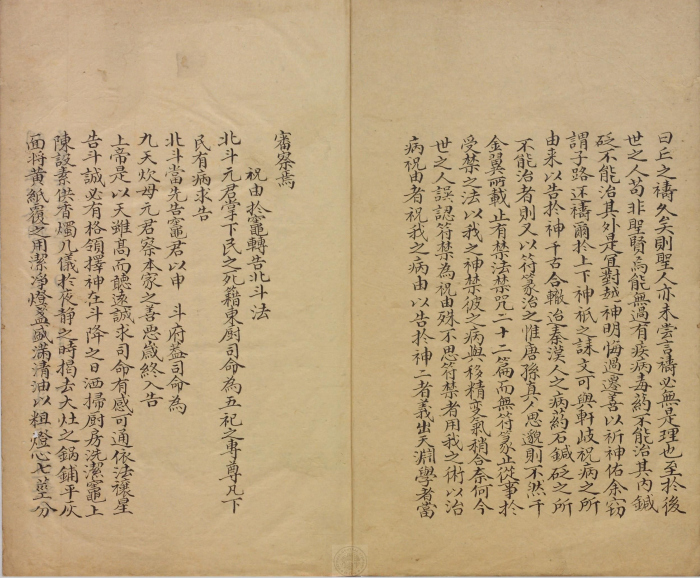 曰丘之禱久矣則聖人亦未嘗言禱必無是理也至於後
世之人苟非聖賢烏能無過有疾病毒藥不能治其內鍼
砭不能治其外是宜對越神明悔過遷善以祈神佑余竊
謂子路述禱爾於上下神祇之誄文可與軒岐祝病之所
由來以告於神千古合轍迨秦漢人之病藥石鍼砭之所
不能治者則又以符篆治之惟唐孫真人思邈則不然千
金翼所載止有禁法禁咒二十二篇而無符篆止從事於
受禁之法以我之神禁彼之病與移精变氣稍合奈何今
世之人誤認符禁為祝由殊不思符禁者用我之術以治
病祝由者祝我之病由以告於神二者義出天淵學者當
審察焉
祝由於竈轉告北斗法
北斗元君掌下民之死籍東厨司命為五祀之專尊凡下
民有病求告
北斗當先告竈君以申 斗府葢司命為
九天炊母元君察本家之善惡嵗終入告
上帝是以天雖髙而聽逺誠求司命有感可通依法禳星
告斗誠必有格領擇神在斗降之日洒掃厨房洗潔竈上
陳設素供香燭几儀於夜靜之時揭去大灶之鍋鋪平灰
面将黄紙覆之用潔淨燈盞盛滿清油以粗燈心七莖分